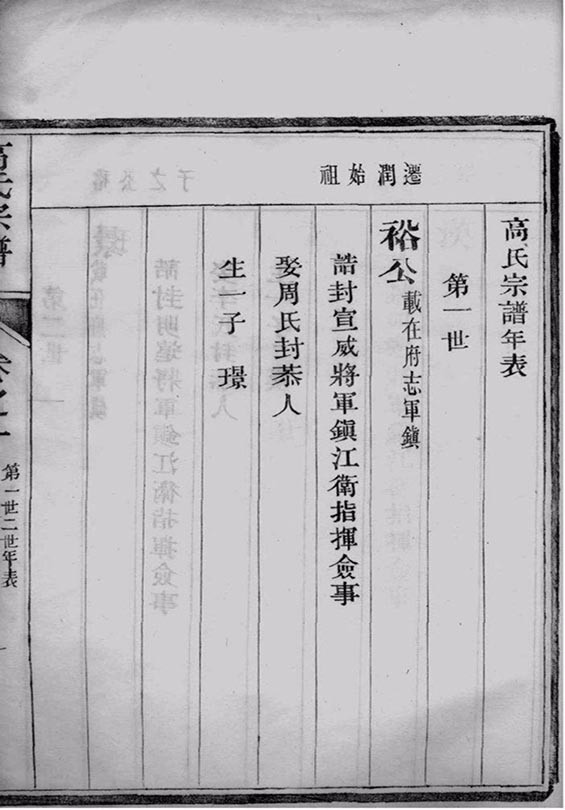 高氏宗譜年表
第一世
遷潤始祖
裕公 載在府志軍鎮
誥封宣威將軍鎮江衛指揮僉事
娶周氏封恭人
生一子 璟
高氏宗譜
卷之一
第一世二世年表